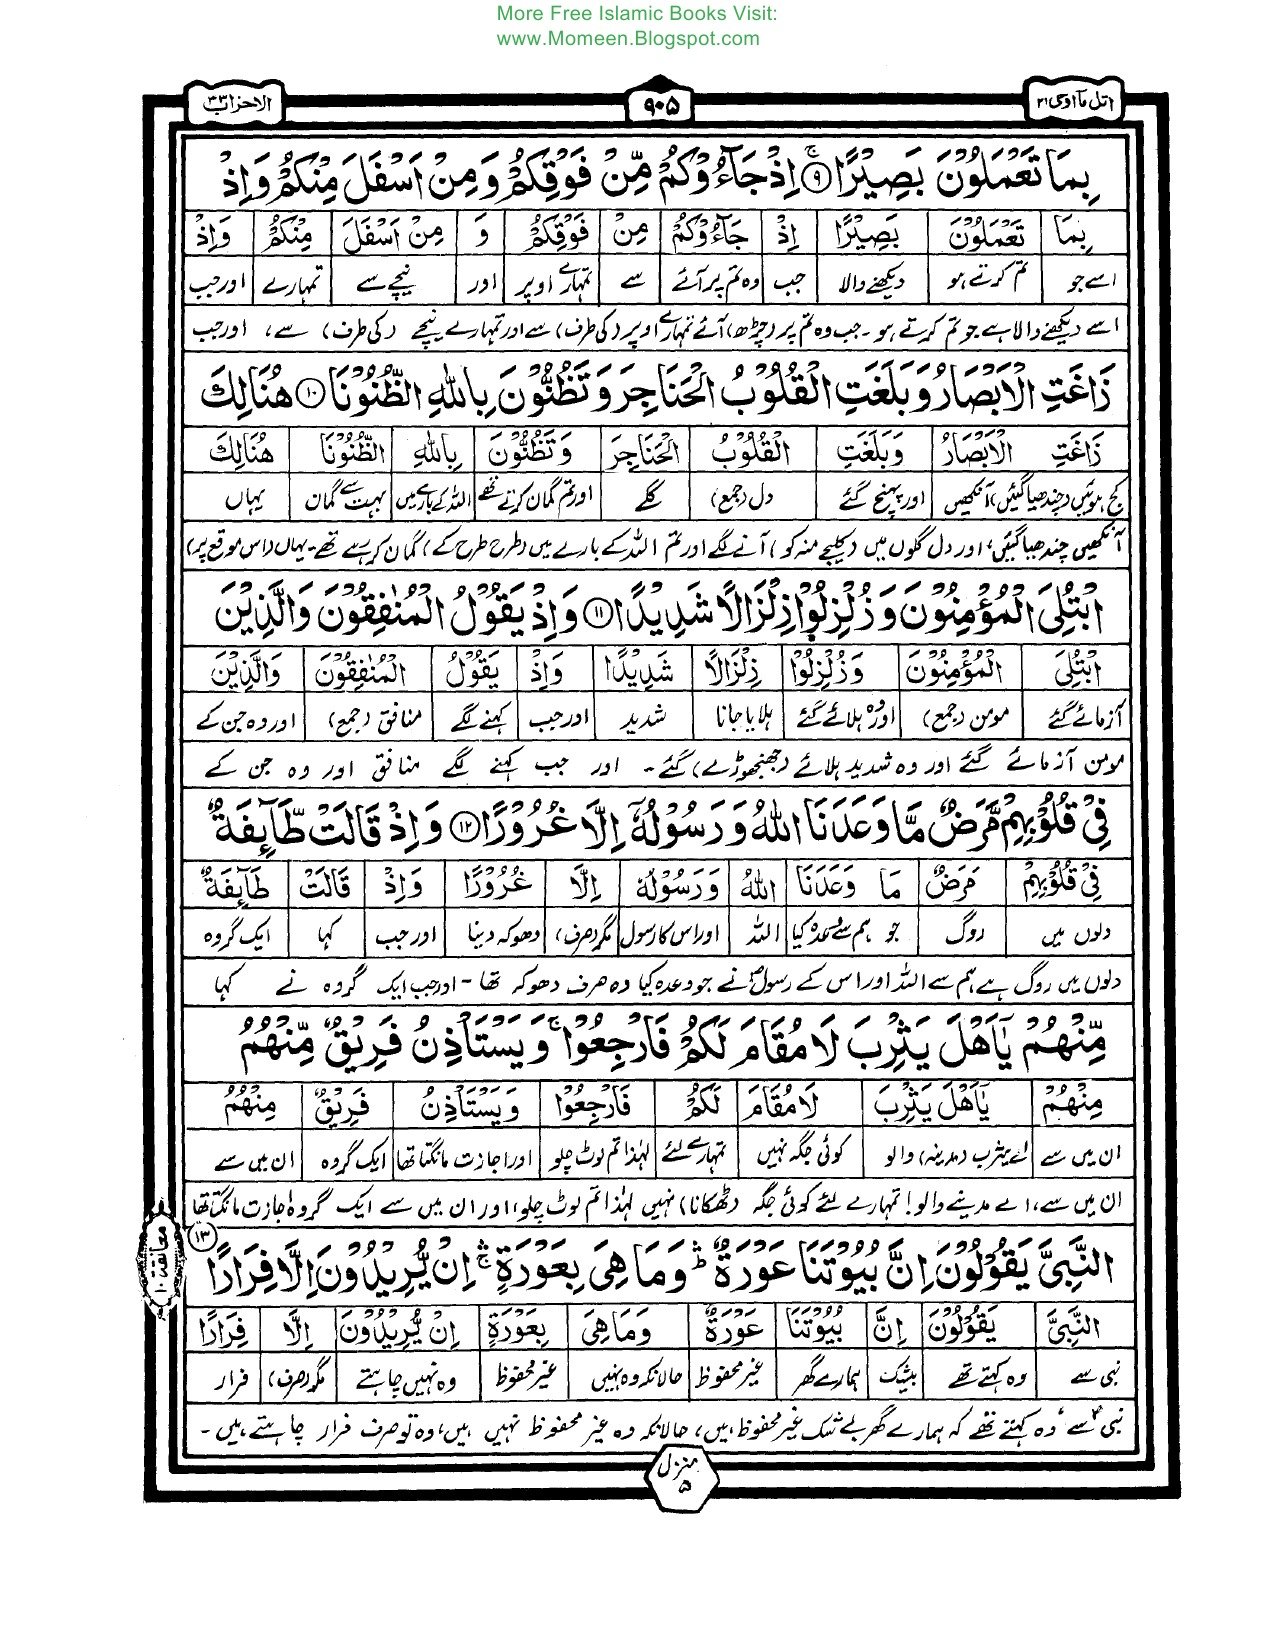 More Free Islamic Books Visit:
www.Momeen.Blogspot.com
اتل مآ اوحی ۲۱
۹۰۵
الاحزاب ۳۳
بِمَا تَعْمَلُوْنَ بَصِيْرًا ۹ اِذْ جَآءُوْكُمْ مِّنْ فَوْقِكُمْ وَ مِنْ اَسْفَلَ مِنْكُمْ وَ اِذْ
بِمَا تَعْمَلُوْنَ بَصِيْرًا اِذْ جَآءُوْكُمْ مِنْ فَوْقِكُمْ وَ مِنْ اَسْفَلَ مِنْكُمْ وَاِذْ
اسے جو تم کرتے ہو دیکھنے والا جب وہ تم پر آئے سے تمہارے اوپر اور نیچے سے تمہارے اور جب
اسے دیکھنے والا ہے جو تم کرتے ہو۔ جب وہ تم پر (چڑھ) آئے تمہارے اوپر (کی طرف) سے اور تمہارے نیچے (کی طرف) سے، اور جب
زَاغَتِ الْاَبْصَارُ وَ بَلَغَتِ الْقُلُوْبُ الْحَنَاجِرَ وَ تَظُنُّوْنَ بِاللّٰهِ الظُّنُوْنَا ۱۰ هُنَالِكَ
زَاغَتِ الْاَبْصَارُ وَ بَلَغَتِ الْقُلُوْبُ الْحَنَاجِرَ وَ تَظُنُّوْنَ بِاللّٰهِ الظُّنُوْنَا هُنَالِكَ
کج ہوئیں (چندھیا گئیں) آنکھیں اور پہنچ گئے دل (جمع) گلے اور تم گمان کرتے تھے اللہ کے بارے میں بہت سے گمان یہاں
آنکھیں چندھیا گئیں، اور دل گلوں میں (کلیجے منہ کو) آنے لگے اور تم اللہ کے بارے میں (طرح طرح کے) گمان کر رہے تھے۔ یہاں (اس موقع پر)
ابْتُلِيَ الْمُؤْمِنُوْنَ وَ زُلْزِلُوْا زِلْزَالًا شَدِيْدًا ۱۱ وَ اِذْ يَقُوْلُ الْمُنٰفِقُوْنَ وَ الَّذِيْنَ
ابْتُلِيَ الْمُؤْمِنُوْنَ وَ زُلْزِلُوْا زِلْزَالًا شَدِيْدًا وَاِذْ يَقُوْلُ الْمُنٰفِقُوْنَ وَالَّذِيْنَ
آزمائے گئے مومن (جمع) اور وہ ہلائے گئے ہلایا جانا شدید اور جب کہنے لگے منافق (جمع) اور وہ جن کے
مومن آزمائے گئے اور وہ شدید ہلائے (جھنجھوڑے) گئے۔ اور جب کہنے لگے منافق اور وہ جن کے
فِيْ قُلُوْبِهِمْ مَّرَضٌ مَّا وَعَدَنَا اللّٰهُ وَ رَسُوْلُهٗۤ اِلَّا غُرُوْرًا ۱۲ وَ اِذْ قَالَتْ طَّآئِفَةٌ
فِيْ قُلُوْبِهِمْ مَرَضٌ مَا وَعَدَنَا اللّٰهُ وَ رَسُوْلُهٗ اِلَّا غُرُوْرًا وَاِذْ قَالَتْ طَآئِفَةٌ
دلوں میں روگ جو ہم سے وعدہ کیا اللہ اور اس کا رسول مگر (صرف) دھوکہ دینا اور جب کہا ایک گروہ
دلوں میں روگ ہے ہم سے اللہ اور اس کے رسولؐ نے جو وعدہ کیا وہ صرف دھوکہ تھا۔ اور جب ایک گروہ نے کہا
مِّنْهُمْ يٰۤاَهْلَ يَثْرِبَ لَا مُقَامَ لَكُمْ فَارْجِعُوْا ۚ وَ يَسْتَاْذِنُ فَرِيْقٌ مِّنْهُمُ
مِنْهُمْ يٰۤاَهْلَ يَثْرِبَ لَا مُقَامَ لَكُمْ فَارْجِعُوْا وَ يَسْتَاْذِنُ فَرِيْقٌ مِنْهُمُ
ان میں سے اے یثرب (مدینہ) والو کوئی جگہ نہیں تمہارے لئے لہٰذا تم لوٹ چلو اور اجازت مانگتا تھا ایک گروہ ان میں سے
ان میں سے، اے مدینے والو! تمہارے لئے کوئی جگہ (ٹھکانا) نہیں لہٰذا تم لوٹ چلو، اور ان میں سے ایک گروہ اجازت مانگتا تھا
النَّبِيَّ يَقُوْلُوْنَ اِنَّ بُيُوْتَنَا عَوْرَةٌ ۛؕ وَ مَا هِيَ بِعَوْرَةٍ ۛۚ اِنْ يُّرِيْدُوْنَ اِلَّا فِرَارًا ۱۳
النَّبِيَّ يَقُوْلُوْنَ اِنَّ بُيُوْتَنَا عَوْرَةٌ وَمَا هِيَ بِعَوْرَةٍ اِنْ يُّرِيْدُوْنَ اِلَّا فِرَارًا
نبی سے وہ کہتے تھے بیشک ہمارے گھر غیر محفوظ حالانکہ وہ نہیں غیر محفوظ وہ نہیں چاہتے مگر (صرف) فرار
نبیؐ سے، وہ کہتے تھے کہ ہمارے گھر بے شک غیر محفوظ ہیں، حالانکہ وہ غیر محفوظ نہیں ہیں، وہ تو صرف فرار چاہتے ہیں۔
معانقة ۱۰
منزل ۵